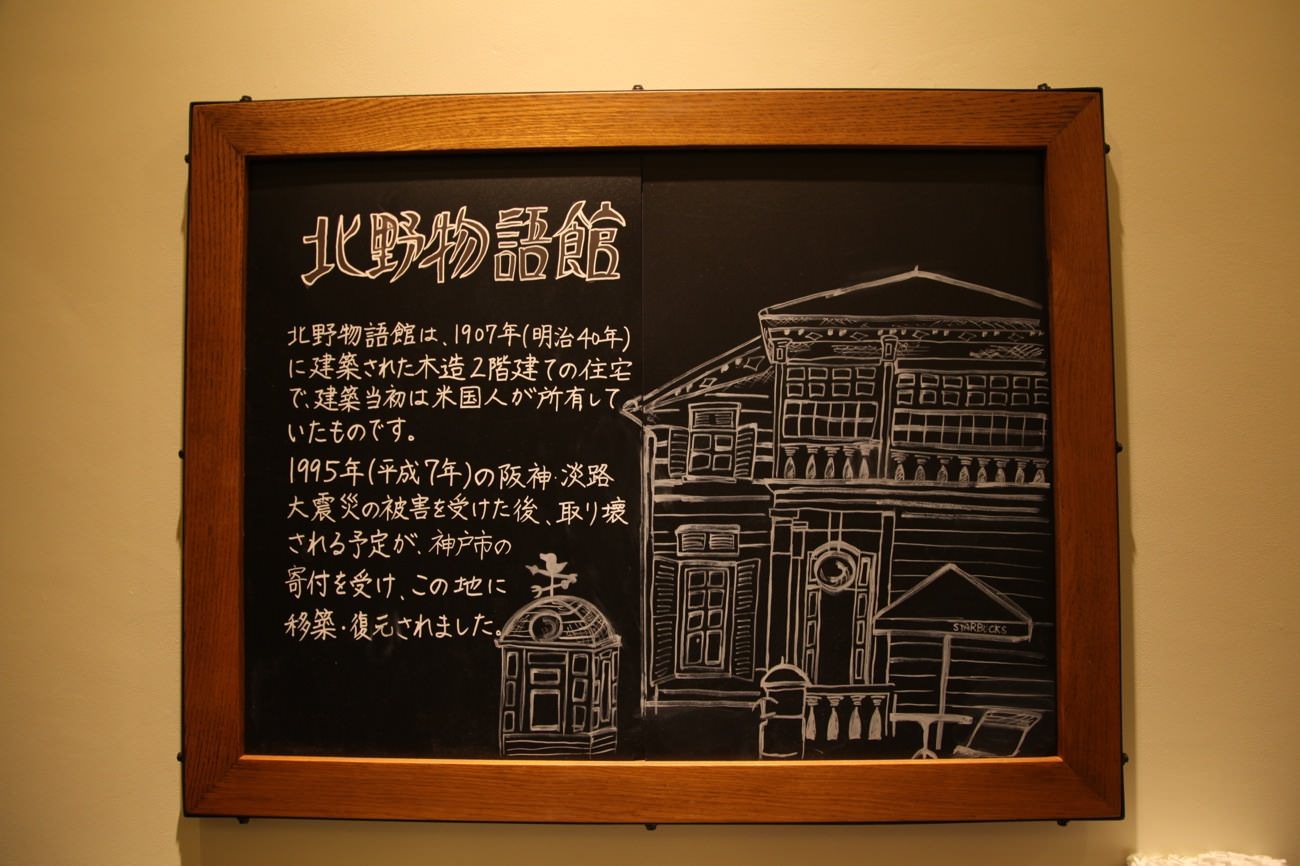 北野物語館
北野物語館は、1907年(明治40年)
に建築された木造2階建ての住宅
で、建築当初は米国人が所有して
いたものです。
1995年(平成7年)の阪神・淡路
大震災の被害を受けた後、取り壊
される予定が、神戸市の
寄付を受け、この地に
移築・復元されました。
STARBUCKS